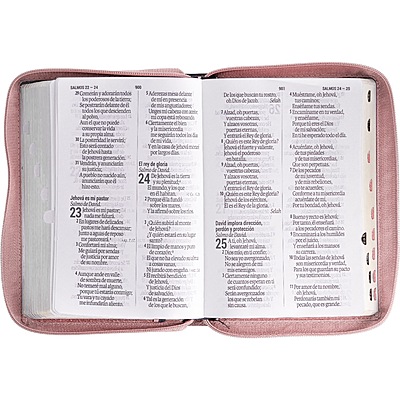 SALMOS 22 — 24
900
29 Comerán y adorarán todos
los poderosos de la tierra;
Se postrarán delante de él
todos los que descienden
al polvo,
Aun el que no puede
conservar la vida
a su propia alma.
30 La posteridad le servirá;
Esto será contado
de Jehová hasta
la postrera generación.
31 Vendrán, y anunciarán
su justicia;
A pueblo no nacido aún,
anunciarán que él
hizo esto.
Jehová es mi pastor
Salmo de David.
23 Jehová es mi pastor;
nada me faltará.
2 En lugares de delicados
pastos me hará descansar;
Junto a aguas de reposo
me pastoreará.
3 Confortará mi alma;
Me guiará por sendas
de justicia por amor
de su nombre.
4 Aunque ande en valle
de sombra de muerte,
No temeré mal alguno,
porque tú estarás conmigo;
Tu vara y tu cayado
me infundirán aliento.
5 Aderezas mesa delante
de mí en presencia
de mis angustiadores;
Unges mi cabeza con aceite;
mi copa está rebosando.
6 Ciertamente el bien
y la misericordia
me seguirán todos los días
de mi vida,
Y en la casa de Jehová moraré
por largos días.
El rey de gloria
Salmo de David.
24 De Jehová es la tierra
y su plenitud;
El mundo, y los que
en él habitan.
2 Porque él la fundó
sobre los mares,
Y la afirmó sobre los ríos.
3 ¿Quién subirá al monte
de Jehová?
¿Y quién estará en su lugar
santo?
4 El limpio de manos y puro
de corazón;
El que no ha elevado su alma
a cosas vanas,
Ni jurado con engaño.
5 El recibirá bendición
de Jehová,
Y justicia del Dios
de salvación.
6 Tal es la generación
de los que le buscan,
901
SALMOS 24 — 25
De los que buscan tu rostro,
oh Dios de Jacob. Selah
7 Alzad, oh puertas,
vuestras cabezas,
Y alzaos vosotras,
puertas eternas,
Y entrará el Rey de gloria.
8 ¿Quién es este Rey de gloria?
Jehová el fuerte y valiente,
Jehová el poderoso
en batalla.
9 Alzad, oh puertas,
vuestras cabezas,
Y alzaos vosotras,
puertas eternas,
Y entrará el Rey de gloria.
10 ¿Quién es este Rey de gloria?
Jehová de los ejércitos,
Él es el Rey de la gloria.
Selah
David implora dirección,
perdón y protección
Salmo de David.
25 A ti, oh Jehová,
levantaré mi alma.
2 Dios mío, en ti confío;
No sea yo avergonzado,
No se alegren de mí
mis enemigos.
3 Ciertamente ninguno
de cuantos esperan en ti
será confundido;
Serán avergonzados
los que se rebelan
sin causa.
4 Muéstrame, oh Jehová,
tus caminos;
Enséñame tus sendas.
5 Encamíname en tu verdad,
y enséñame,
Porque tú eres el Dios
de mi salvación;
En ti he esperado todo el día.
6 Acuérdate, oh Jehová,
de tus piedades
y de tus misericordias,
Que son perpetuas.
7 De los pecados
de mi juventud,
y de mis rebeliones,
no te acuerdes;
Conforme
a tu misericordia
acuérdate de mí,
Por tu bondad, oh Jehová.
8 Bueno y recto es Jehová;
Por tanto, él enseñará
a los pecadores el camino.
9 Encaminará a los humildes
por el juicio,
Y enseñará a los mansos
su carrera.
10 Todas las sendas de Jehová
son misericordia y verdad,
Para los que guardan su pacto
y sus testimonios.
11 Por amor de tu nombre,
oh Jehová,
Perdonarás también
mi pecado, que es grande.